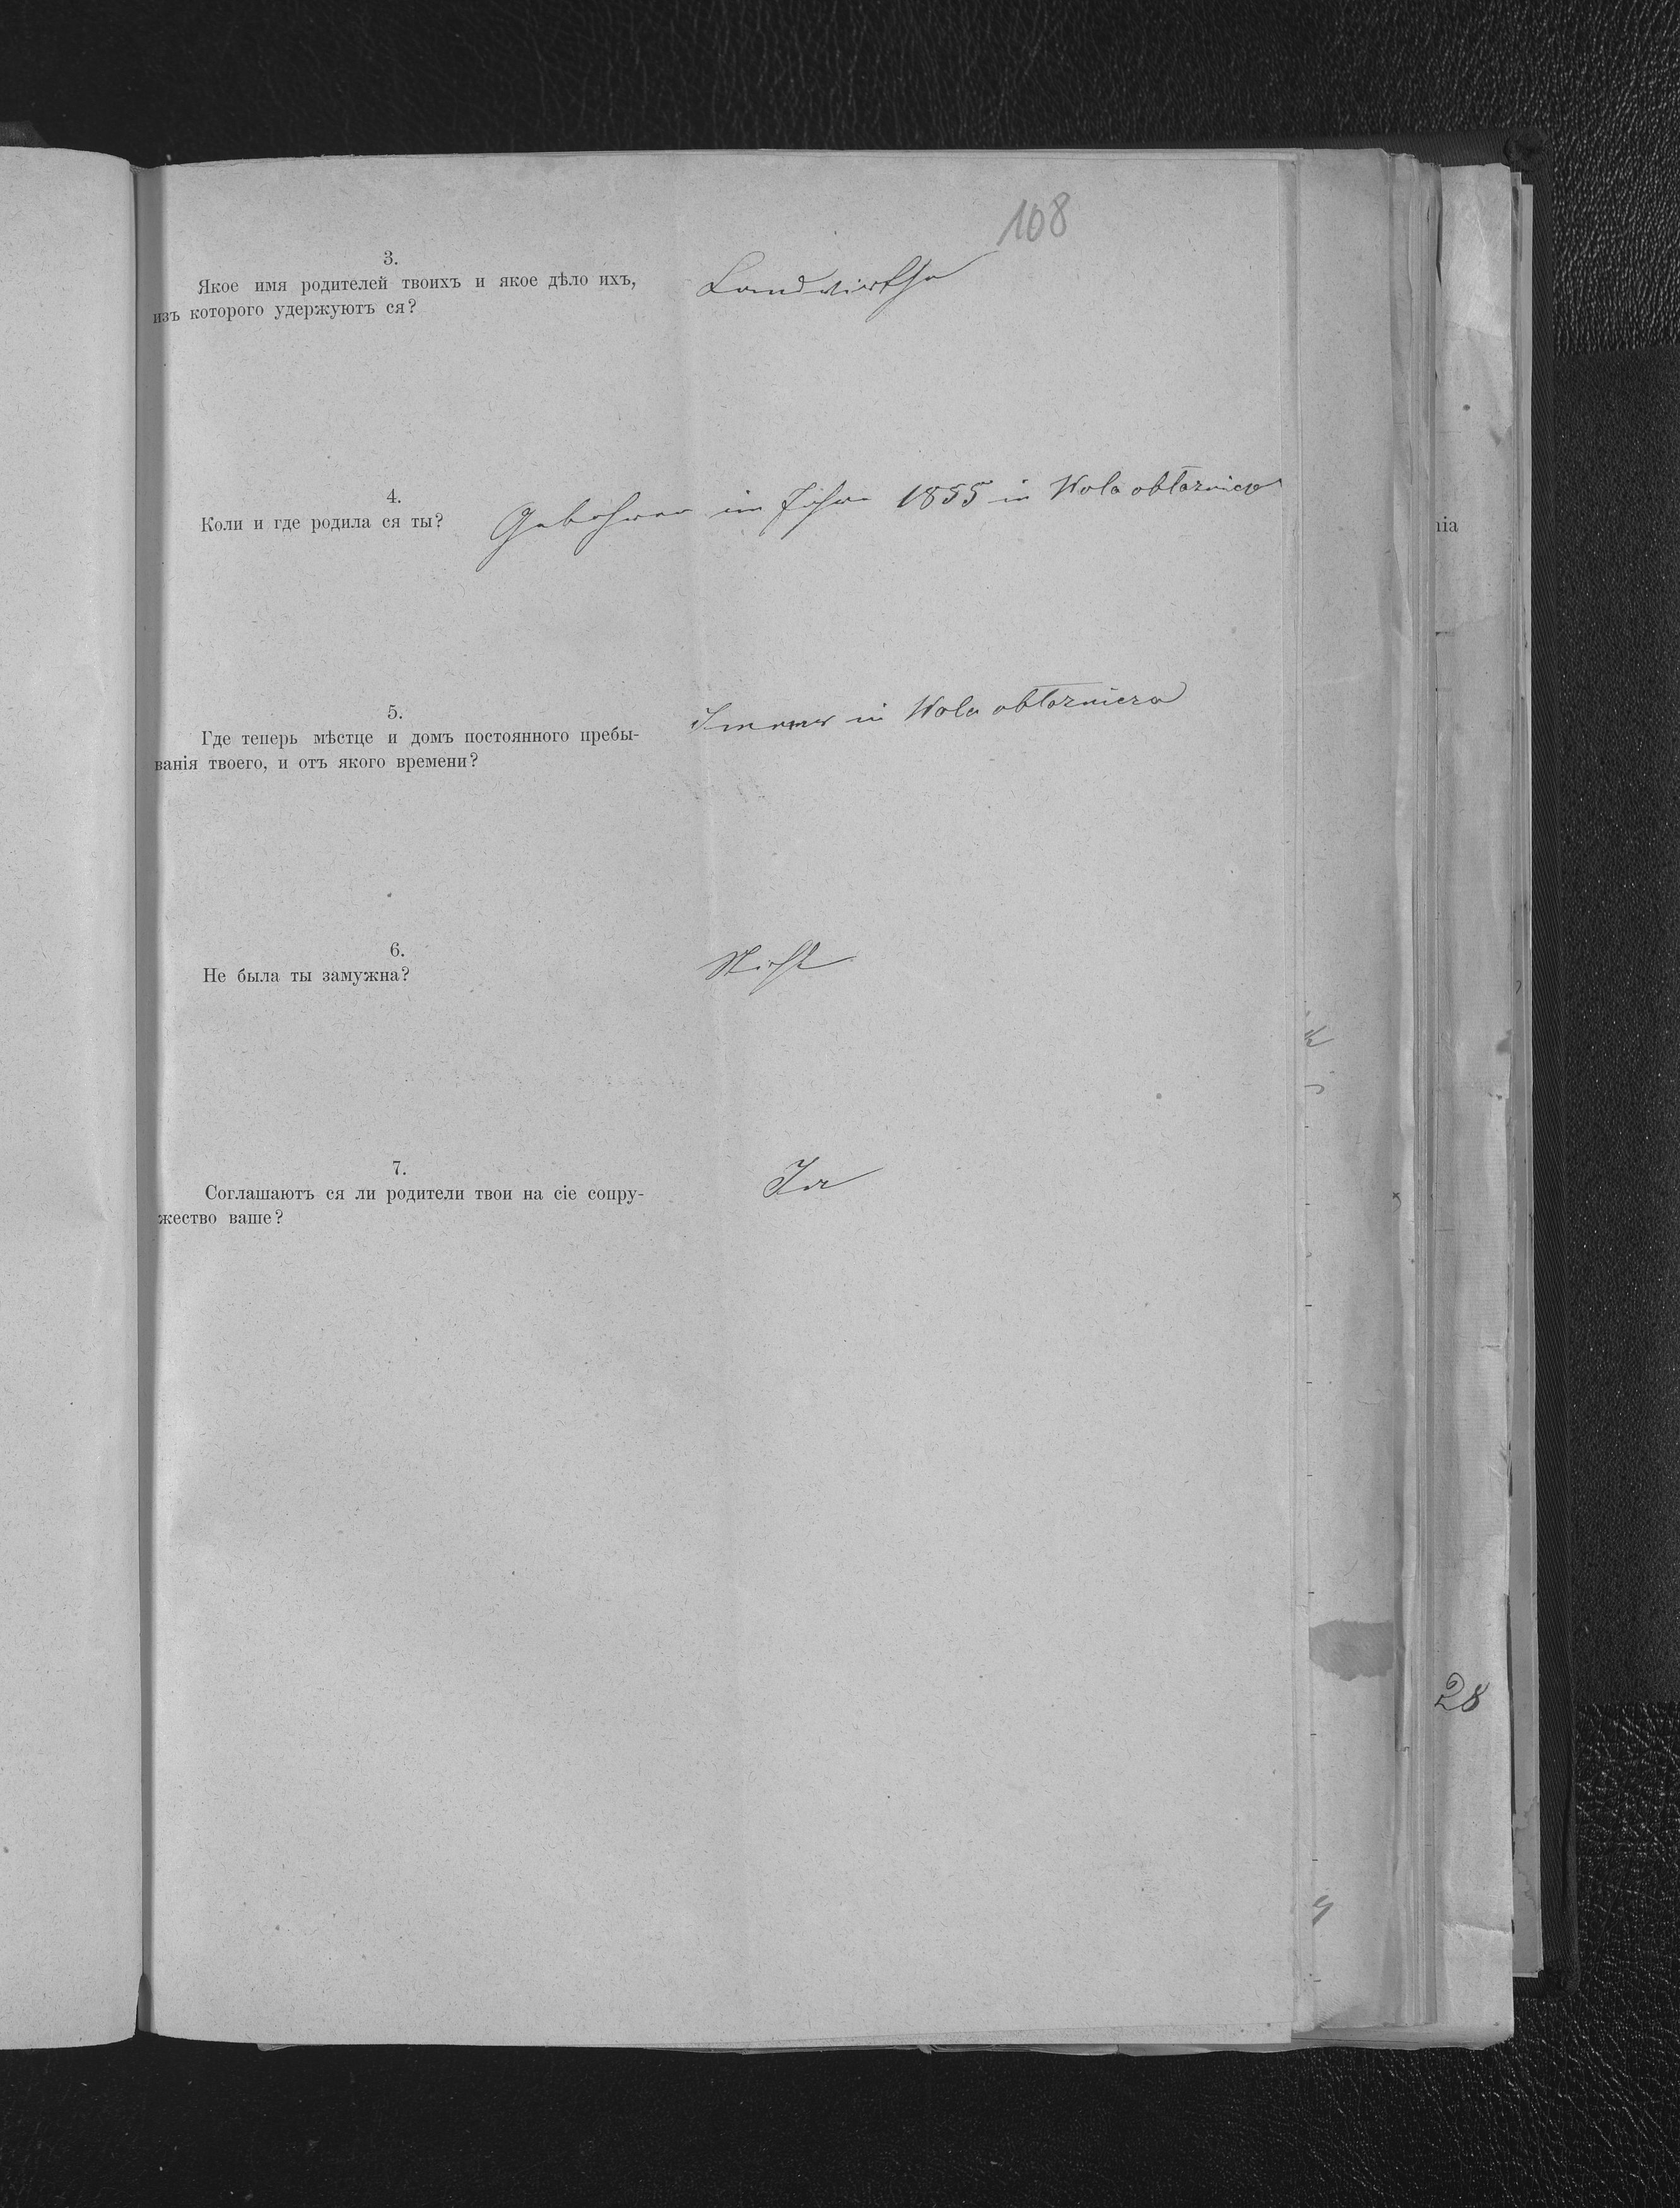 108
3.
Якое имя родителей твоихъ и якое дѣло ихъ,
изъ которого удержуютъ ся?
Landwirthe
4.
Коли и где родила ся ты?
Gebohren im Jahre 1855 in Wola obłaznica
5.
Где теперь мѣстце и домъ постоянного пребы-
ванія твоего, и отъ якого времени?
Immer in Wola obłaznica
6.
Не была ты замужна?
Nicht
7.
Соглашаютъ ся ли родители твои на сіе сопру-
жество ваше?
Ja
nia
28